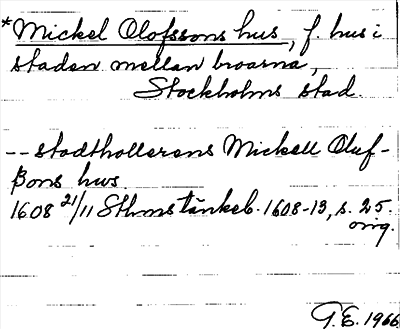 *Mickel Olofssons hus, f. hus i
staden mellan broarna,
Stockholms stad
-- stadthollerens Mickell Oluf-
ßons hus
1608 21/11 Sthms tänkeb. 1608-13, s. 25.
orig.
G.E. 1966